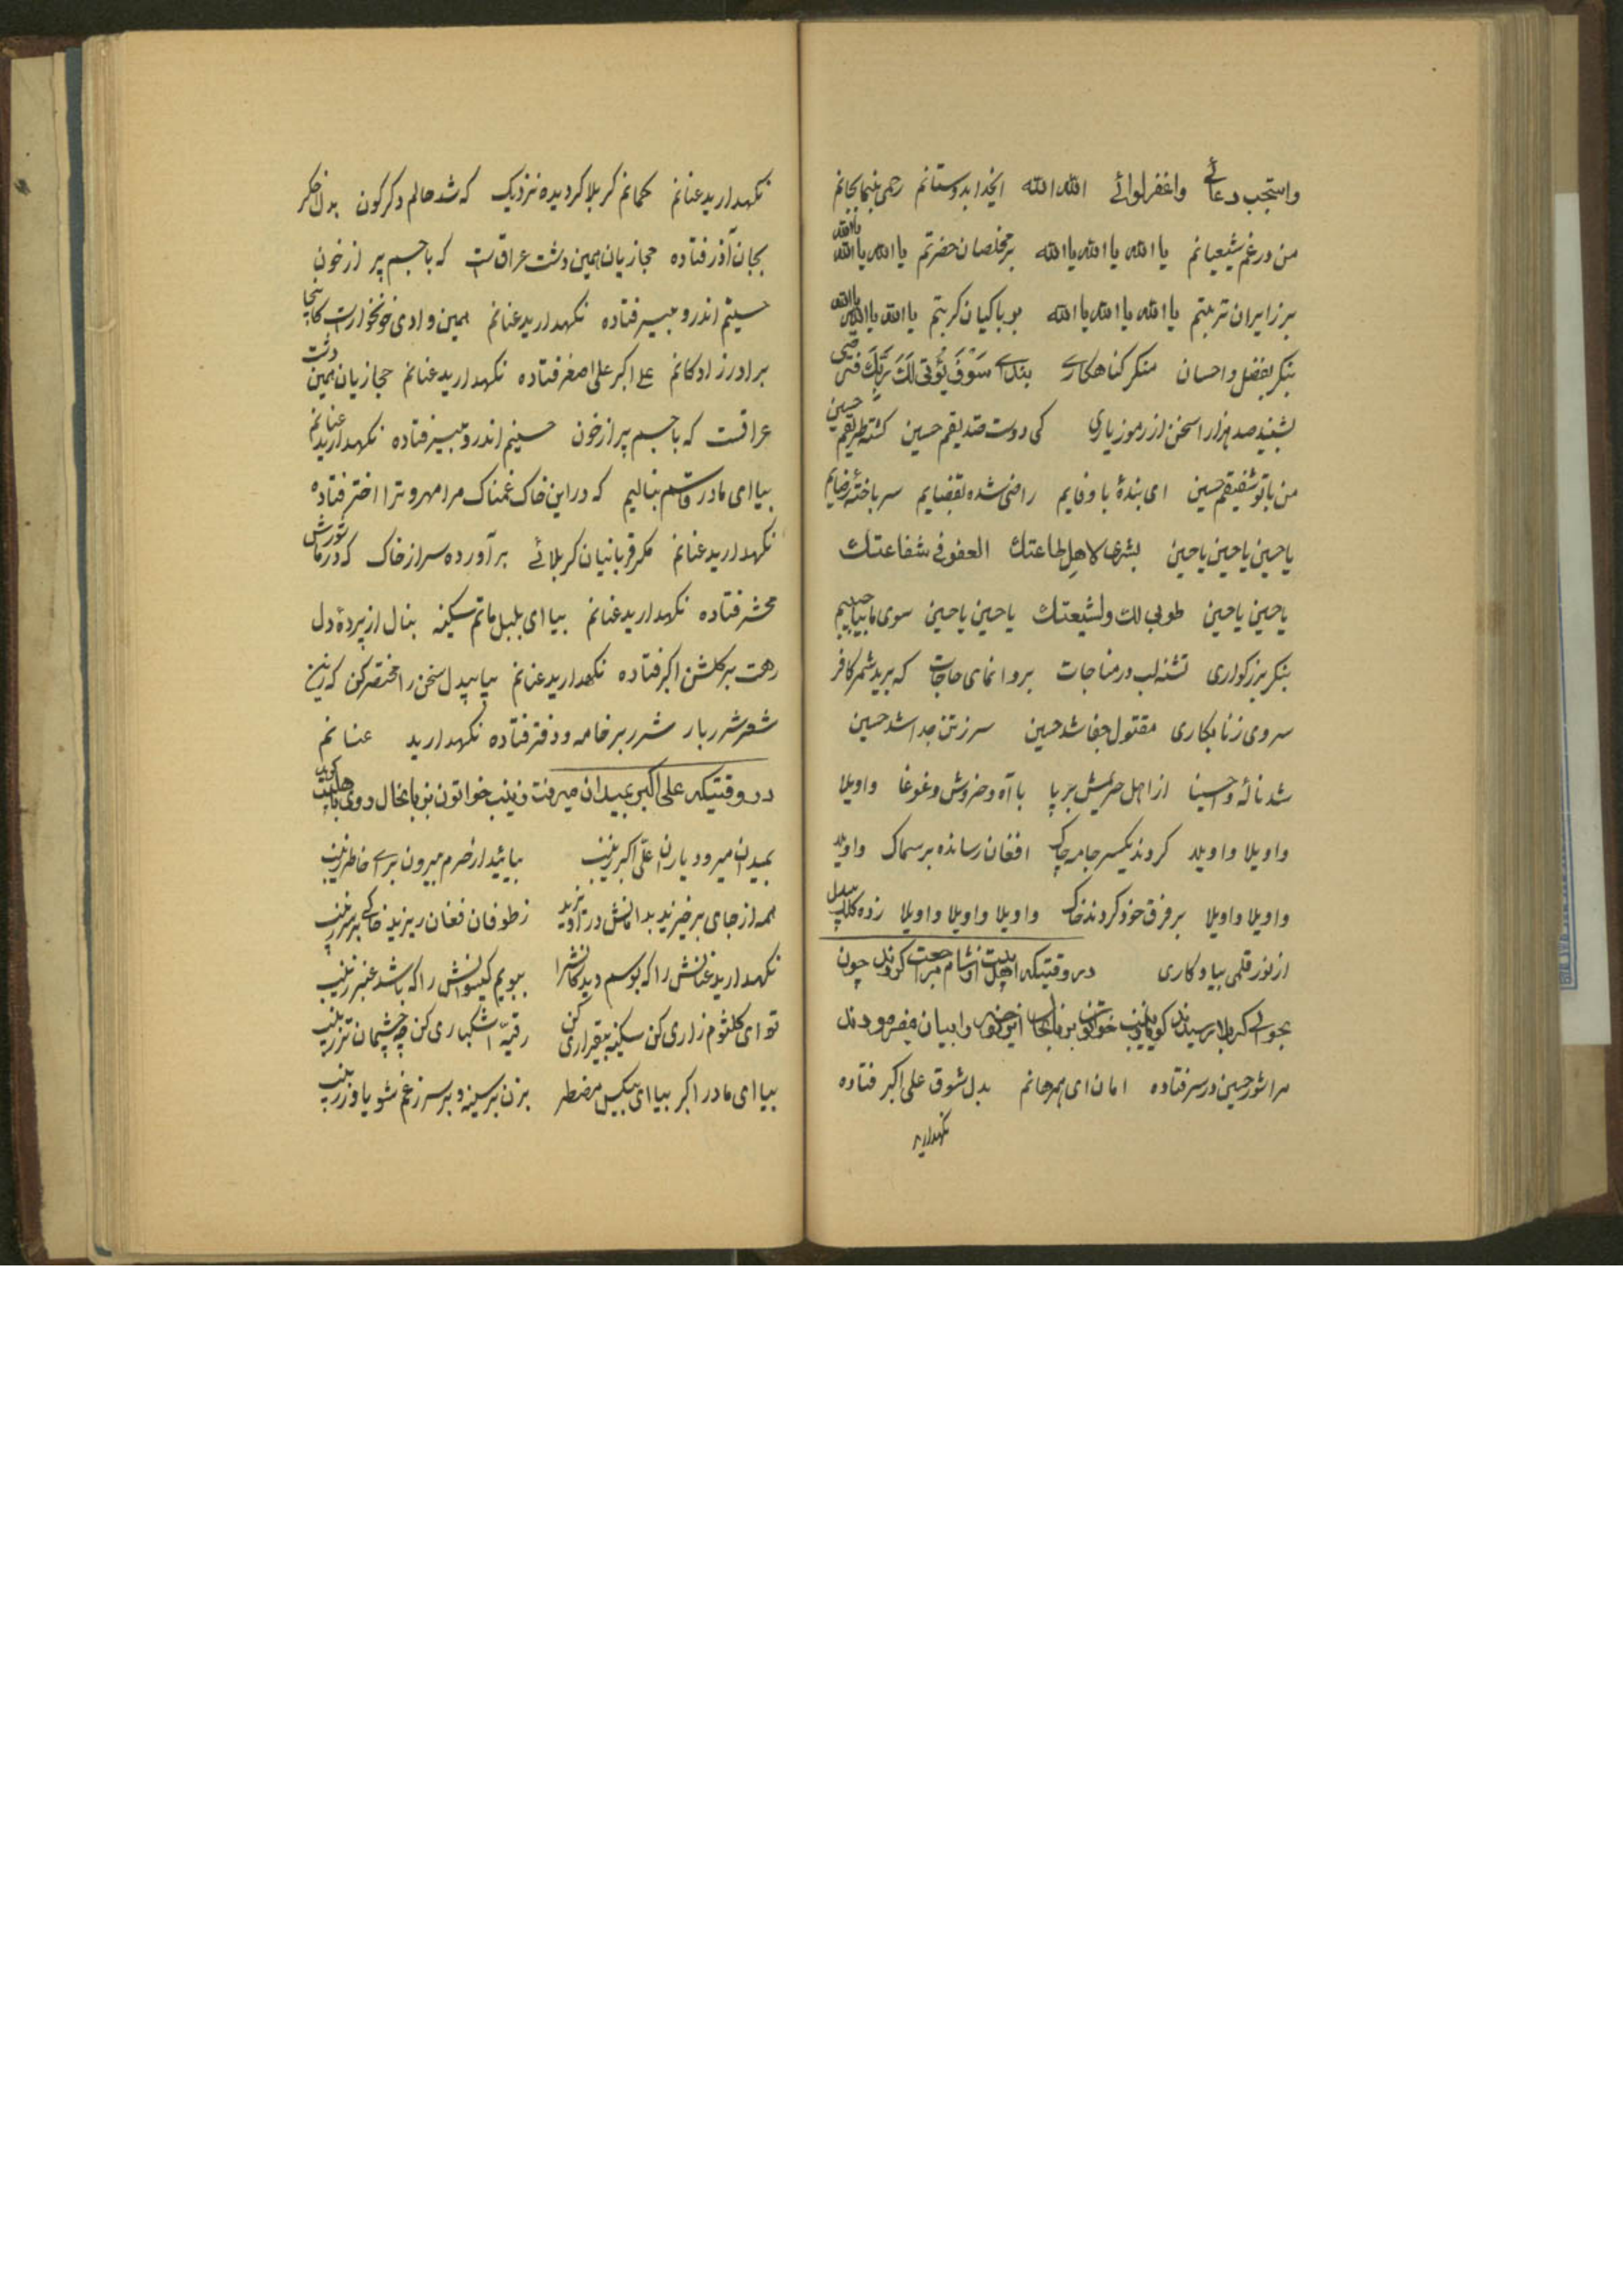 واستجب دعائے واغفر لوائے الله الله ایخدا بدوستانم رحمی بنما بجانم
من در غم شیعیانم یا الله یا الله یا الله بر مخلصان حضرتم یا الله یا الله یا الله
بر زایران تربتم یا الله یا الله یا الله بر باکیان کربتم یا الله یا الله یا الله
بنکر بفضل و احسان منکر کناهکارے بندے سَوْفَ یُؤتی لَكَ رَبُّكَ فترضی
بشنید صد هزارا سخن از رموز یاری کی دوست صدیقم حسین کشته طریقم حسین
من با تو شفیقم حسین ای بندهٔ با وفایم راضی شده بقضایم سر باختهٔ رضایم
یاحسین یاحسین یاحسین بشری لاهل طاعتك العفو فی شفاعتك
یاحسین یاحسین طوبی لك ولشیعتك یاحسین یاحسین سوی ما بیا حبیبم
بنکر بزرکواری تشنه لب در مناجات بر وا نمای حاجات که برید شمر کافر
سر وی ز نابکاری مقتول جفا شد حسین سر ز تن جدا شد حسین
شد نالهٔ واحسینا از اهل حریمش بر پا با آه و خروش و غوغا واویلا
واویلا واویلا کردند یکسر جامه چاک افغان رسانده بر سماک واویلا
واویلا واویلا بر فرق خود کردند خاک واویلا واویلا واویلا زده کلک بیدل
از نوز قلمی بیادکاری در وقتیکه اهلبیت از شام مراجعت کردند چون
بحوالی کربلا رسیدند کویا زینب خواتون بزبانحال این نوحه را بیان میفرمودند
مرا شور حسین در سر فتاده امان ای همرهانم بدل شوق علی اکبر فتاده
نکهدارید
نکهدارید عنانم کمانم کربلا کردیده نزدیک که شد حالم دکرکون بدل اخکر
بجان آذر فتاده حجازیان همین دشت عراق است که با جسم پر از خون
حسینم اندر و بیسر فتاده نکهدارید عنانم همین وادی خونخوار است کاینجا
برادرزادکانم علے اکبر علی اصغر فتاده نکهدارید عنانم حجازیان همین دشت
عراقست که با جسم پر از خون حسینم اندر و بیسر فتاده نکهدارید عنانم
بیا ای مادر قاسم بنالیم که در این خاک غمناک مرا مهر و ترا اختر فتاده
نکهدارید عنانم مکر قربانیان کربلائے بر آورده سر از خاک که در ما شورش
محشر فتاده نکهدارید عنانم بیا ای بلبل ماتم سکینه بنال از پردهٔ دل
رهت بر کلشن اکبر فتاده نکهدارید عنانم بیا بیدل سخن را مختصر کن که زین
شعر شرربار شرر بر خامه و دفتر فتاده نکهدارید عنانم
در وقتیکه علی اکبر بمیدان میرفت زینب خواتون بزبانحال روی باهلبیت کوید
بمیدان میرود یاران علّی اکبر زینب بیائید از حرم بیرون برای خاطر زینب
همه از جای برخیزید بدامانش در آویزید ز طوفان فغان ریزید خاکی بر سر زینب
نکهدارید عنانش را که بوسم دیدکانشرا ببویم کیسوانش را که باشد عنبر زینب
تو ای کلثوم زاری کن سکینه بیقراری کن رقیّه اشکباری کن چه چشمان تر زینب
بیا ای مادر اکبر بیا ای بیکس مضطر بزن بر سینه و بر سر ز غم شو یاور زینب